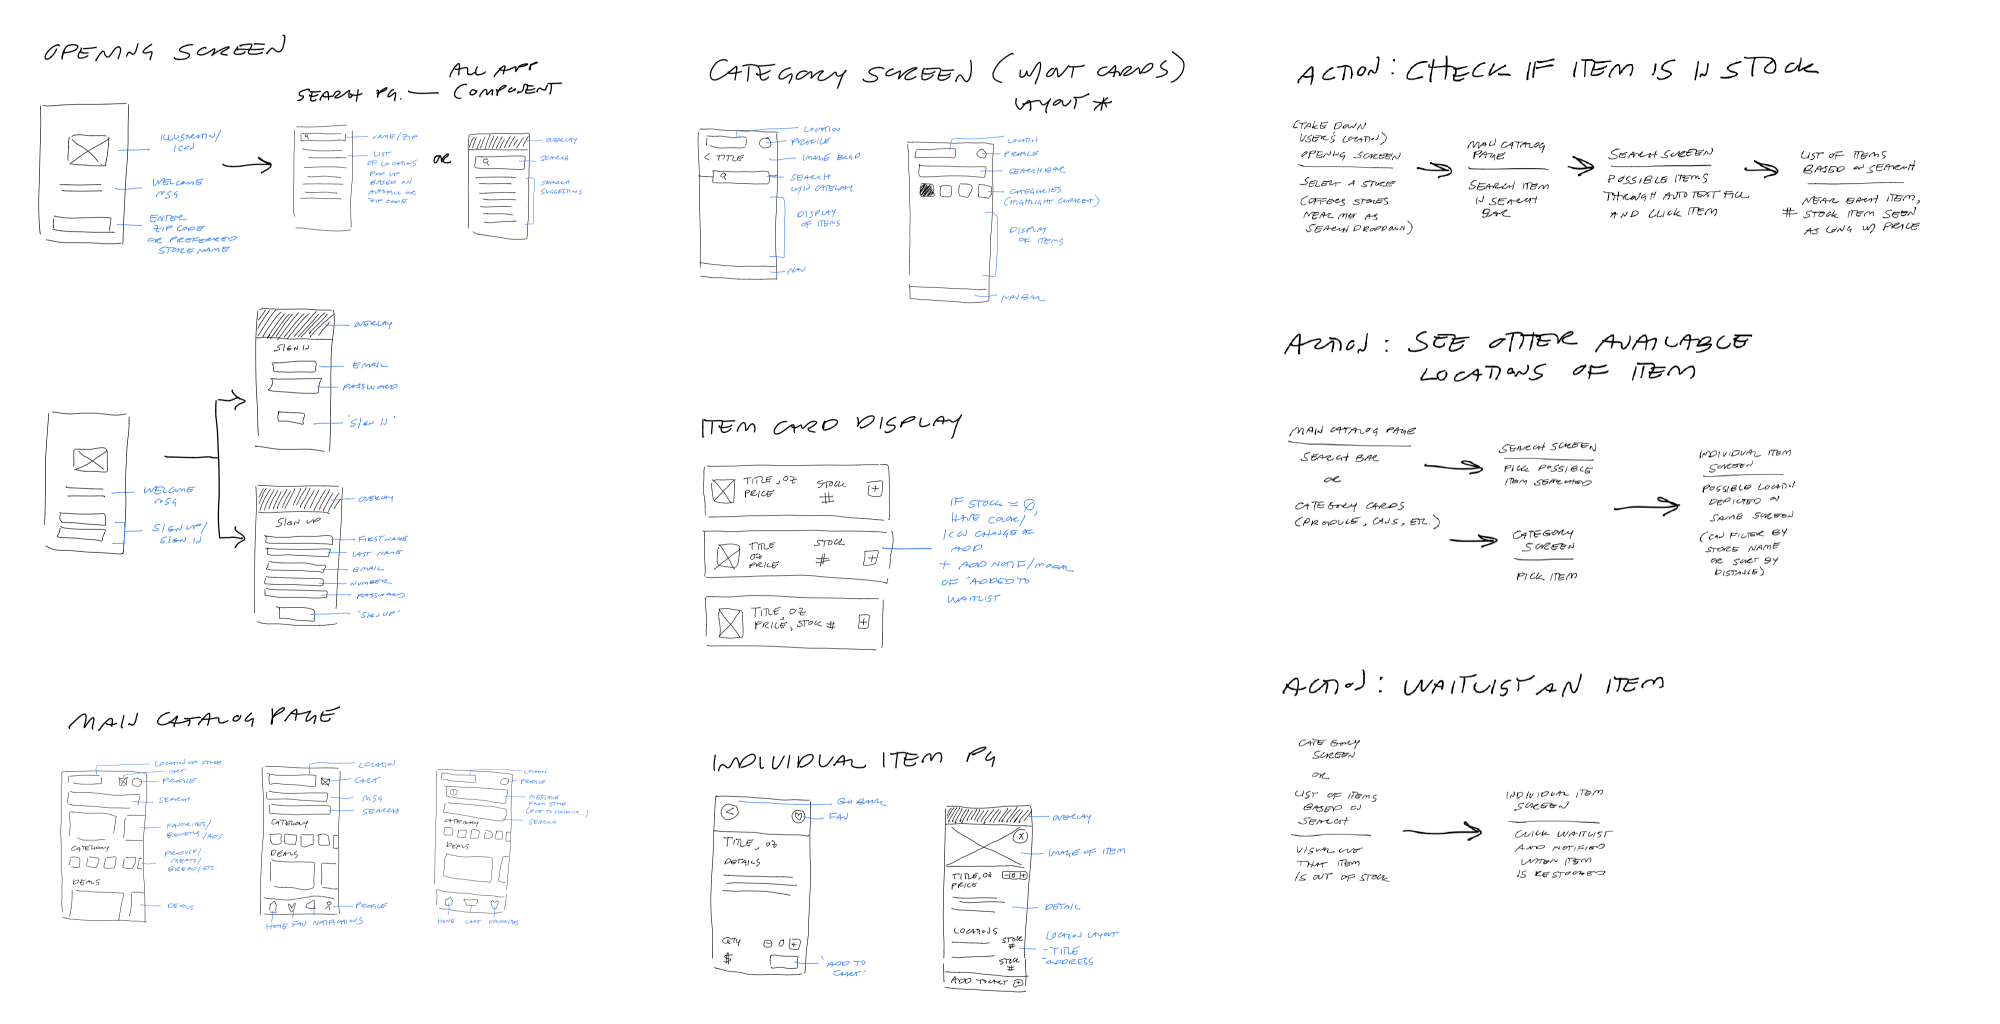 OPENING SCREEN
SEARCH PG. — ALL APP
COMPONENT
ILLUSTRATIN/
ICON
WELCOME
MSG
ENTER
ZIP CODE
OR PREFERRED
STORE NAME
NAME/ZIP
LIST
OF LOCATIONS
POP UP
BASED ON
AUTOFILL OR
ZIP CODE
OR
OVERLAY
SEARCH
SEARCH
SUGGESTIONS
WELCOME
MSG
SIGN UP/
SIGN IN
SIGN IN
OVERLAY
EMAIL
PASSWORD
'SIGN IN'
SIGN UP
OVERLAY
FIRST NAME
LAST NAME
EMAIL
NUMBER
PASSWORD
'SIGN UP'
MAIN CATALOG PAGE
LOCATION OF STORE
CART
PROFILE
SEARCH
FAVORITES/
BANNERS/ADS
CATEGORY
PRODUCE/
MEATS/
BREAD/ETC.
DEALS
DEALS
LOCATION
CART
MSG
SEARCH
CATEGORY
DEALS
PROFILE
HOME FAV NOTIFICATIONS
LOCATION
PROFILE
MESSAGE
FROM STORE
SEARCH
CATEGORY
DEALS
HOME CART FAVORITES
CATEGORY SCREEN (W/OUT CARDS)
LAYOUT *
LOCATION
PROFILE
< TITLE
IMAGE BKGD
SEARCH
W/IN CATEGORY
DISPLAY
OF ITEMS
NAV
LOCATIN
PROFILE
SEARCH BAR
CATEGORIES
(HIGHLIGHT CURRENT)
DISPLAY
OF ITEMS
NAV BAR
ITEM CARD DISPLAY
TITLE, OZ
PRICE
STOCK
#
+
TITLE
OZ
PRICE
STOCK
#
+
TITLE, OZ
PRICE, STOCK #
+
IF STOCK = 0,
HAVE COLOR/
ICON CHANGE OF
ADD
+ ADD NOTIF/MODAL
OF 'ADDED TO
WAITLIST
INDIVIDUAL ITEM PG
<
GO BACK
FAV
TITLE, OZ
DETAILS
QTY - 0 +
$
'ADD TO
CART'
OVERLAY
X
IMAGE OF ITEM
TITLE, OZ -0+
PRICE
DETAIL
LOCATIONS
STOCK
#
STOCK
#
LOCATION LAYOUT
- TITLE
- ADDRESS
ADD TO CART +
ACTION: CHECK IF ITEM IS IN STOCK
(TAKE DOWN
USER'S LOCATION)
OPENING SCREEN
SELECT A STORE
(OFFERS STORES
NEAR ME AS
SEARCH DROPDOWN)
MAIN CATALOG
PAGE
SEARCH ITEM
IN SEARCH
BAR
SEARCH SCREEN
POSSIBLE ITEMS
THROUGH AUTO TEXT FILL
AND CLICK ITEM
LIST OF ITEMS
BASED ON SEARCH
NEAR EACH ITEM,
# STOCK ITEM SEEN
AS LONG W/ PRICE
ACTION: SEE OTHER AVAILABLE
LOCATIONS OF ITEM
MAIN CATALOG PAGE
SEARCH BAR
OR
CATEGORY CARDS
(PRODUCE, CANS, ETC.)
SEARCH SCREEN
PICK POSSIBLE
ITEM SEARCHED
CATEGORY
SCREEN
PICK ITEM
INDIVIDUAL ITEM
SCREEN
POSSIBLE LOCATION
DEPICTED ON
SAME SCREEN
(CAN FILTER BY
STORE NAME
OR SORT BY
DISTANCE)
ACTION: WAITLIST AN ITEM
CATEGORY
SCREEN
OR
LIST OF ITEMS
BASED ON
SEARCH
VISUAL CUE
THAT ITEM
IS OUT OF STOCK
INDIVIDUAL ITEM
SCREEN
CLICK WAITLIST
AND NOTIFIED
WHEN ITEM
IS RESTOCKED